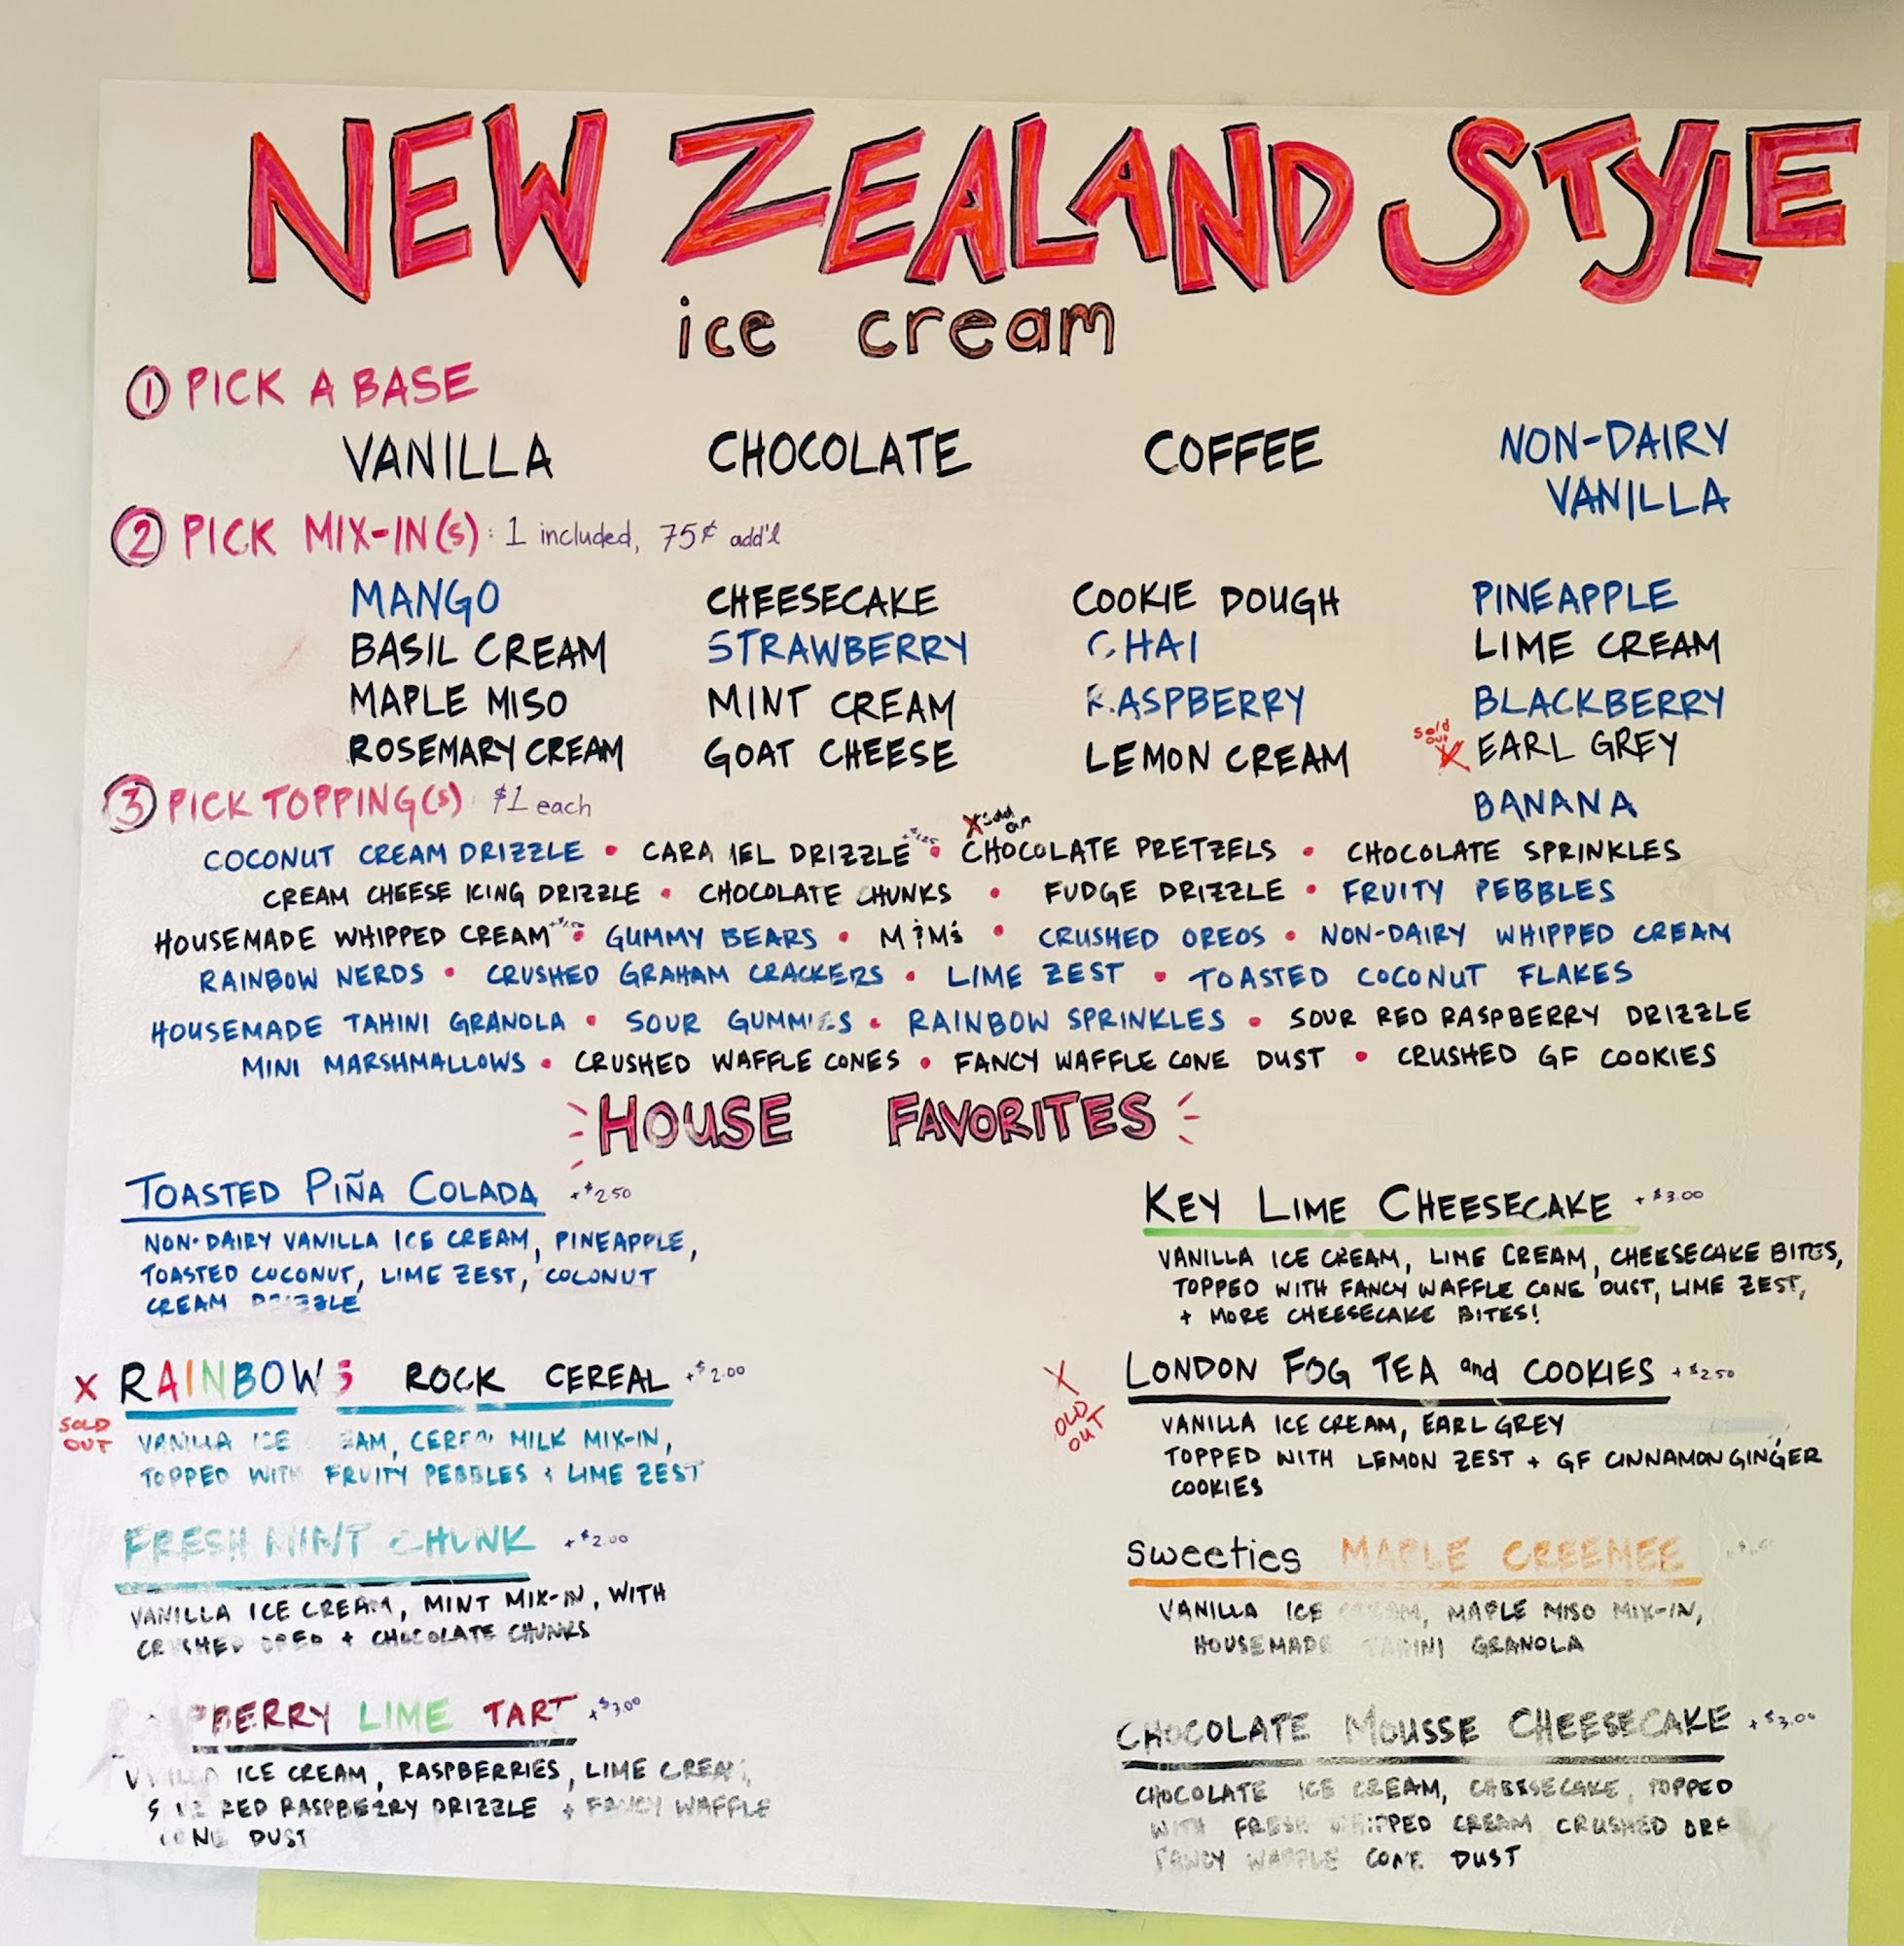 NEW ZEALAND STYLE
ice cream
① PICK A BASE
VANILLA CHOCOLATE COFFEE NON-DAIRY VANILLA
② PICK MIX-IN(S): 1 included, 75¢ add'l
MANGO CHEESECAKE COOKIE DOUGH PINEAPPLE
BASIL CREAM STRAWBERRY CHAI LIME CREAM
MAPLE MISO MINT CREAM RASPBERRY BLACKBERRY
ROSEMARY CREAM GOAT CHEESE LEMON CREAM sold out X EARL GREY
BANANA
③ PICK TOPPING(S) $1 each
X sold out
COCONUT CREAM DRIZZLE • CARAMEL DRIZZLE • CHOCOLATE PRETZELS • CHOCOLATE SPRINKLES
CREAM CHEESE ICING DRIZZLE • CHOCOLATE CHUNKS • FUDGE DRIZZLE • FRUITY PEBBLES
HOUSEMADE WHIPPED CREAM • GUMMY BEARS • M&M's • CRUSHED OREOS • NON-DAIRY WHIPPED CREAM
RAINBOW NERDS • CRUSHED GRAHAM CRACKERS • LIME ZEST • TOASTED COCONUT FLAKES
HOUSEMADE TAHINI GRANOLA • SOUR GUMMIES • RAINBOW SPRINKLES • SOUR RED RASPBERRY DRIZZLE
MINI MARSHMALLOWS • CRUSHED WAFFLE CONES • FANCY WAFFLE CONE DUST • CRUSHED GF COOKIES
HOUSE FAVORITES
TOASTED PIÑA COLADA +$2.50
NON-DAIRY VANILLA ICE CREAM, PINEAPPLE,
TOASTED COCONUT, LIME ZEST, COCONUT
CREAM DRIZZLE
X RAINBOWS ROCK CEREAL +$2.00
SOLD OUT
VANILLA ICE CREAM, CEREAL MILK MIX-IN,
TOPPED WITH FRUITY PEBBLES & LIME ZEST
FRESH MINT CHUNK +$2.00
VANILLA ICE CREAM, MINT MIX-IN, WITH
CRUSHED OREO + CHOCOLATE CHUNKS
RASPBERRY LIME TART +$3.00
VANILLA ICE CREAM, RASPBERRIES, LIME CREAM,
SOUR RED RASPBERRY DRIZZLE + FANCY WAFFLE
CONE DUST
KEY LIME CHEESECAKE +$3.00
VANILLA ICE CREAM, LIME CREAM, CHEESECAKE BITES,
TOPPED WITH FANCY WAFFLE CONE DUST, LIME ZEST,
+ MORE CHEESECAKE BITES!
X LONDON FOG TEA and COOKIES +$2.50
OLD OUT
VANILLA ICE CREAM, EARL GREY
TOPPED WITH LEMON ZEST + GF CINNAMON GINGER
COOKIES
sweeties MAPLE CREEMEE
VANILLA ICE CREAM, MAPLE MISO MIX-IN,
HOUSEMADE TAHINI GRANOLA
CHOCOLATE MOUSSE CHEESECAKE +$3.00
CHOCOLATE ICE CREAM, CHEESECAKE, TOPPED
WITH FRESH WHIPPED CREAM CRUSHED ORE
FANCY WAFFLE CONE DUST